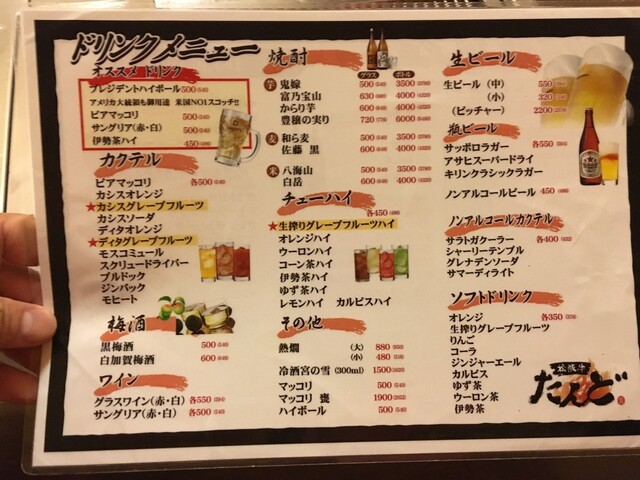 ドリンクメニュー
オススメ ドリンク
プレジデントハイボール 500 (540)
アメリカ大統領も御用達 米国NO1スコッチ!!
ビアマッコリ 500 (540)
サングリア(赤・白) 500 (540)
伊勢茶ハイ 450 (486)
カクテル
ビアマッコリ 各500 (540)
カシスオレンジ
★カシスグレープフルーツ
カシスソーダ
ディタオレンジ
★ディタグレープフルーツ
モスコミュール
スクリュードライバー
ブルドック
ジンバック
モヒート
梅酒
黒梅酒 500 (540)
白加賀梅酒 600 (648)
ワイン
グラスワイン(赤・白) 各550 (594)
サングリア(赤・白) 各500 (540)
焼酎
グラス ボトル
芋 鬼嫁 500 (540) 3500 (3780)
富乃宝山 630 (680) 4000 (4320)
からり芋 600 (648) 4000 (4320)
豊穣の実り 720 (778) 6000 (6480)
麦 和ら麦 500 (540) 3500 (3780)
佐藤 黒 600 (648) 4000 (4320)
米 八海山 500 (540) 3500 (3780)
白岳 600 (648) 4000 (4320)
チューハイ
各450 (486)
★生搾りグレープフルーツハイ
オレンジハイ
ウーロンハイ
コーン茶ハイ
伊勢茶ハイ
ゆず茶ハイ
レモンハイ カルピスハイ
その他
熱燗 (大) 880 (950)
(小) 480 (518)
冷酒宮の雪 (300ml) 1500 (1620)
マッコリ 500 (540)
マッコリ 甕 1900 (2052)
ハイボール 500 (540)
生ビール
生ビール (中) 550
(小) 320
(ピッチャー) 2200
瓶ビール
サッポロラガー 各550 (594)
アサヒスーパードライ
キリンクラシックラガー
ノンアルコールビール 450 (486)
ノンアルコールカクテル
サラトガクーラー 各400 (432)
シャーリーテンプル
グレナデンソーダ
サマーディライト
ソフトドリンク
オレンジ 各350 (378)
生搾りグレープフルーツ
りんご
コーラ
ジンジャーエール
カルピス
ゆず茶
ウーロン茶
伊勢茶
松阪牛
たんど